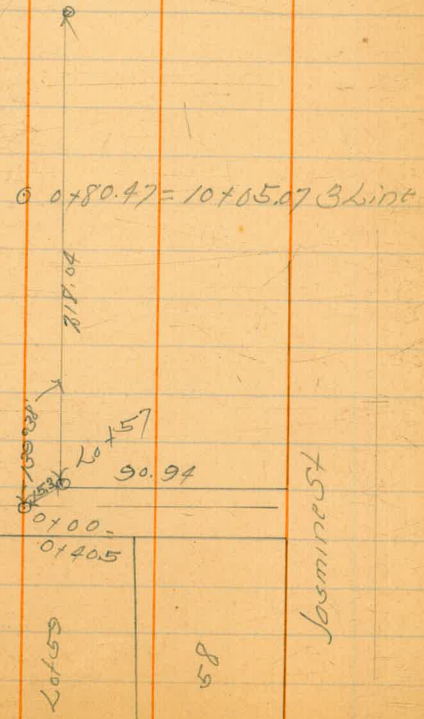 0+80.47 = 10+05.07 B Line
218.04
Lot 57
90.94
.53
0+00.
0+40.5
Jasmine St
Lot 59
58